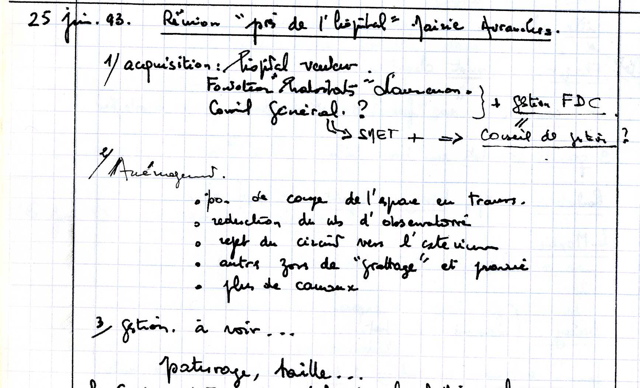 25 jui. 93. Réunion "prés de l'hôpital" Mairie Avranches.
1/ acquisition : hôpital vendeur
Fondation Habitats
Conseil Général. ? + gestion FDC
SMET + => Conseil de gestion ?
2/ Aménagement.
• pas de coupe de l'espace en travers.
• reduction du nb d'observatoire
• rejet du circuit vers l'extérieur
• autres zones de "grattage" et prairie
• plus de canaux
3/ gestion. à voir...
paturage, taille...